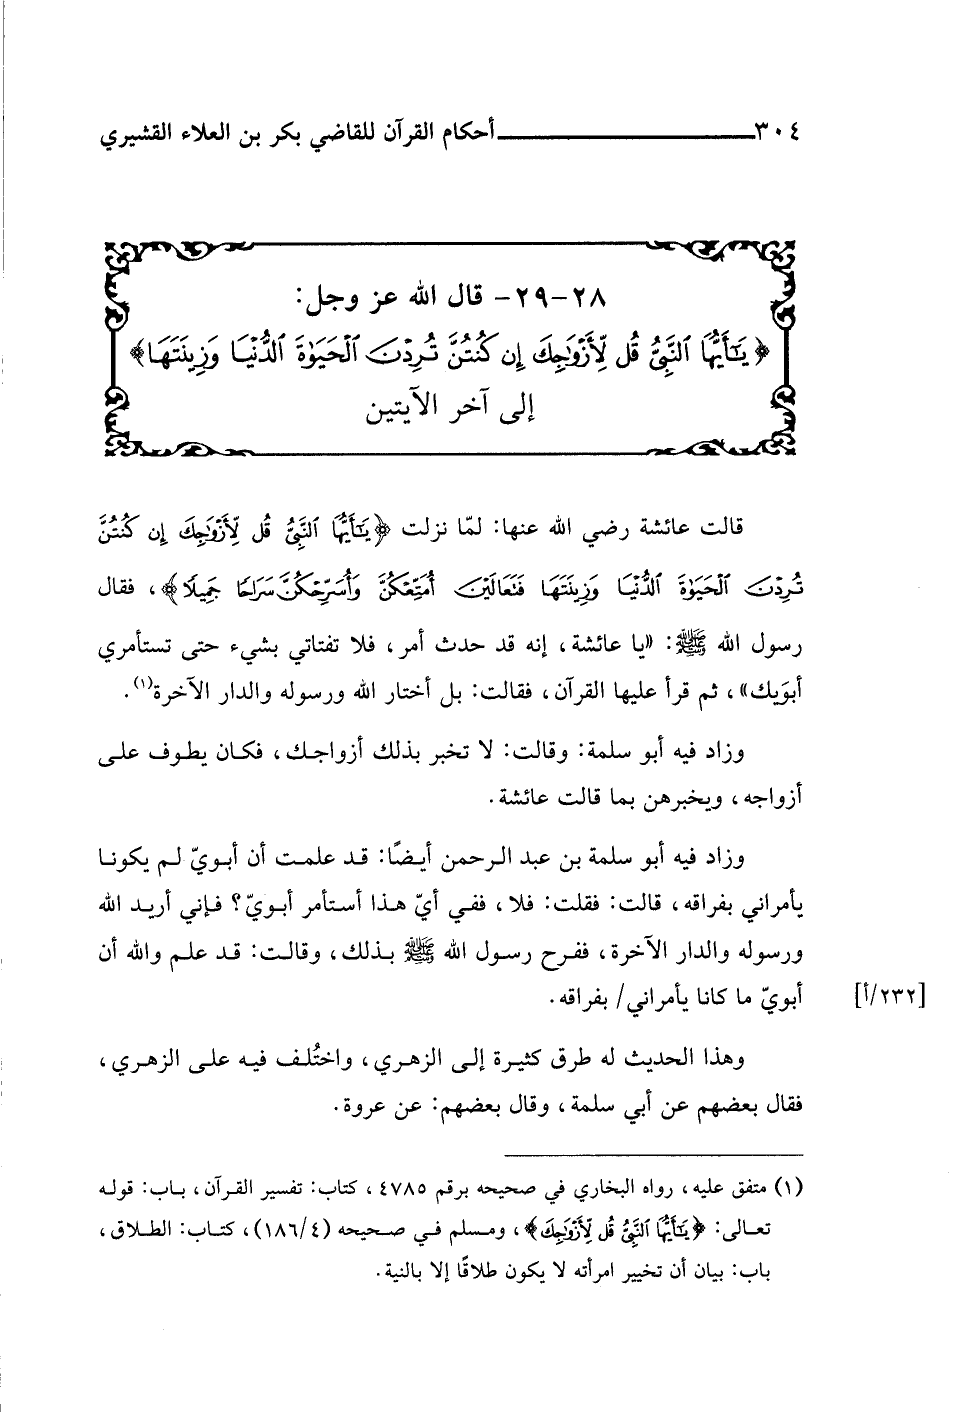 ٣٠٤ أحكام القرآن للقاضي بكر بن العلاء القشيري
٢٨-٢٩- قال الله عز وجل:
﴿يَٰٓأَيُّهَا ٱلنَّبِيُّ قُل لِّأَزْوَٰجِكَ إِن كُنتُنَّ تُرِدْنَ ٱلْحَيَوٰةَ ٱلدُّنْيَا وَزِينَتَهَا﴾
إلى آخر الآيتين
قالت عائشة رضي الله عنها: لمّا نزلت ﴿يَٰٓأَيُّهَا ٱلنَّبِيُّ قُل لِّأَزْوَٰجِكَ إِن كُنتُنَّ
تُرِدْنَ ٱلْحَيَوٰةَ ٱلدُّنْيَا وَزِينَتَهَا فَتَعَالَيْنَ أُمَتِّعْكُنَّ وَأُسَرِّحْكُنَّ سَرَاحًا جَمِيلًا﴾، فقال
رسول الله ﷺ: «يا عائشة، إنه قد حدث أمر، فلا تفتاتي بشيء حتى تستأمري
أبوَيك»، ثم قرأ عليها القرآن، فقالت: بل أختار الله ورسوله والدار الآخرة(١).
وزاد فيه أبو سلمة: وقالت: لا تخبر بذلك أزواجك، فكان يطوف على
أزواجه، ويخبرهن بما قالت عائشة.
وزاد فيه أبو سلمة بن عبد الرحمن أيضًا: قد علمت أن أبويّ لم يكونا
يأمراني بفراقه، قالت: فقلت: فلا، ففي أيّ هذا أستأمر أبويّ؟ فإني أريد الله
ورسوله والدار الآخرة، ففرح رسول الله ﷺ بذلك، وقالت: قد علم والله أن
أبويّ ما كانا يأمراني/ بفراقه. [٢٣٢/أ]
وهذا الحديث له طرق كثيرة إلى الزهري، واختُلف فيه على الزهري،
فقال بعضهم عن أبي سلمة، وقال بعضهم: عن عروة.
(١) متفق عليه، رواه البخاري في صحيحه برقم ٤٧٨٥، كتاب: تفسير القرآن، باب: قوله
تعالى: ﴿يَٰٓأَيُّهَا ٱلنَّبِيُّ قُل لِّأَزْوَٰجِكَ﴾، ومسلم في صحيحه (١٨٦/٤)، كتاب: الطلاق،
باب: بيان أن تخيير امرأته لا يكون طلاقًا إلا بالنية.